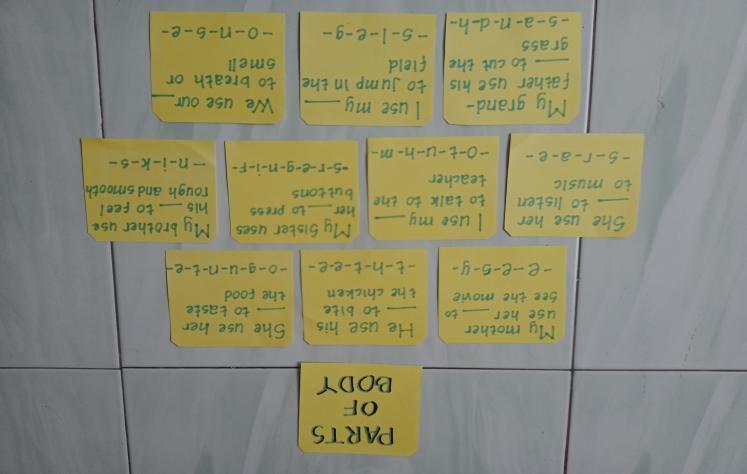 PARTS
OF
BODY
My mother
use her ___ to
see the movie
-e-e-s-y-
He use his
___ to bite
the chicken
-t-h-t-e-e-
She use her
___ to taste
the food
-o-g-u-n-t-e-
She use her
___ to listen
to music
-s-r-a-e-
I use my ___
to talk to the
teacher
-o-t-u-h-m-
My Sister uses
her ___ to press
buttons
-s-r-e-g-n-i-f-
My brother use
his ___ to feel
rough and smooth
-n-i-k-s-
My grand-
father use his
___ to cut the
grass
-s-a-n-d-h-
I use my ___
to jump in the
field
-s-l-e-g-
We use our ___
to breath or
smell
-o-n-s-e-